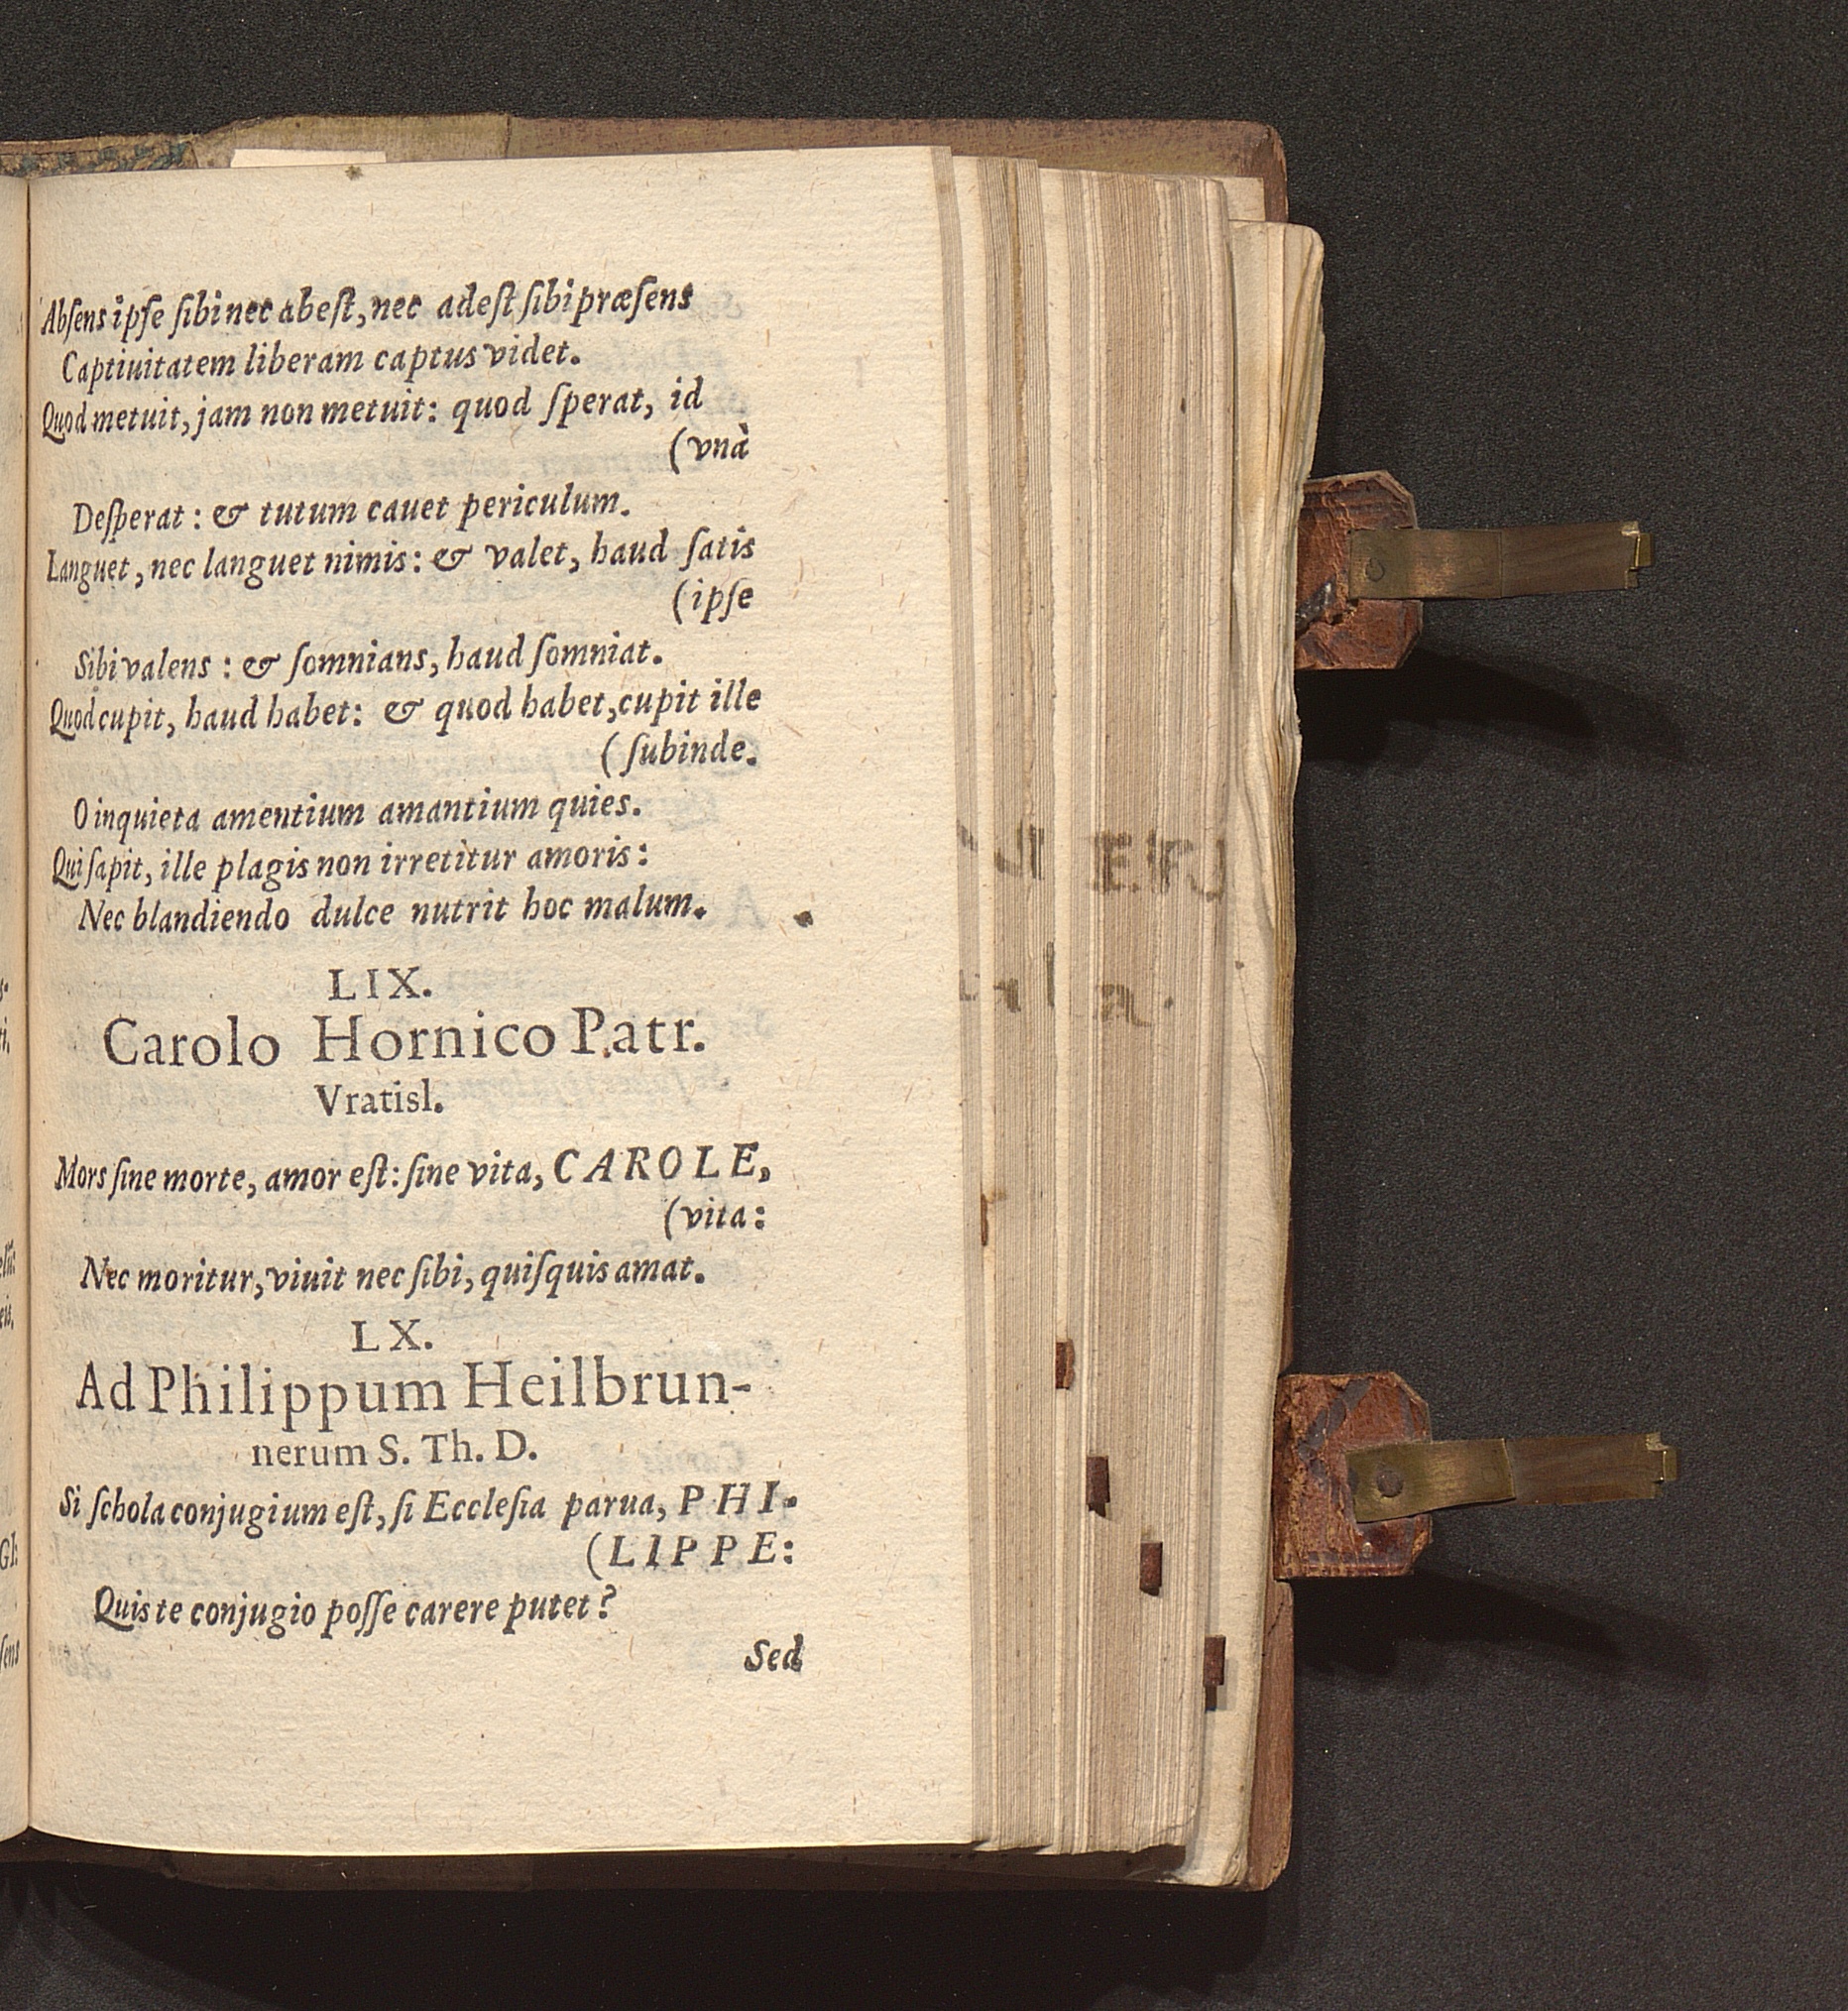 Abſens ipſe ſibi nec abeſt, nec adeſt ſibi præſens
Captiuitatem liberam captus videt.
Quod metuit, jam non metuit: quod ſperat, id
(vnà
Deſperat: & tutum cauet periculum.
Languet, nec languet nimis: & valet, haud ſatis
(ipſe
Sibi valens: & ſomnians, haud ſomniat.
Quod cupit, haud habet: & quod habet, cupit ille
(ſubinde.
O inquieta amentium amantium quies.
Qui ſapit, ille plagis non irretitur amoris:
Nec blandiendo dulce nutrit hoc malum.
LIX.
Carolo Hornico Patr.
Vratisl.
Mors ſine morte, amor eſt: ſine vita, CAROLE,
(vita:
Nec moritur, viuit nec ſibi, quiſquis amat.
LX.
Ad Philippum Heilbrun-
nerum S. Th. D.
Si ſchola conjugium eſt, ſi Eccleſia parua, PHI-
(LIPPE:
Quis te conjugio poſſe carere putet?
Sed